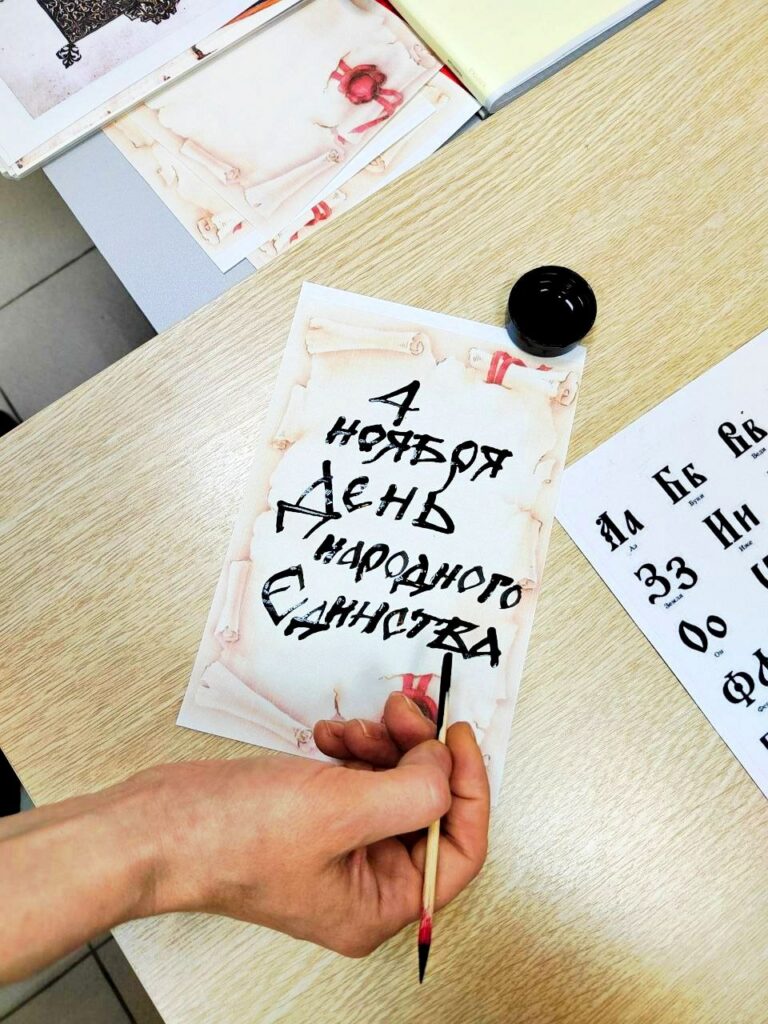 4
ноября
День
народного
Единства
Аа
Аз
Бб
Буки
Вв
Веди
Зз
Земля
Ии
Иже
Оо
Он